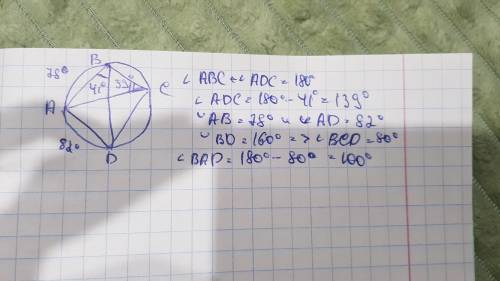 B
78°
41° 39°
C
A
82°
D
∠ ABC + ∠ ADC = 180°
∠ ADC = 180° - 41° = 139°
◡ AB = 78° и ◡ AD = 82°
◡ BD = 160° => ∠ BCD = 80°
∠ BAD = 180° - 80° = 100°